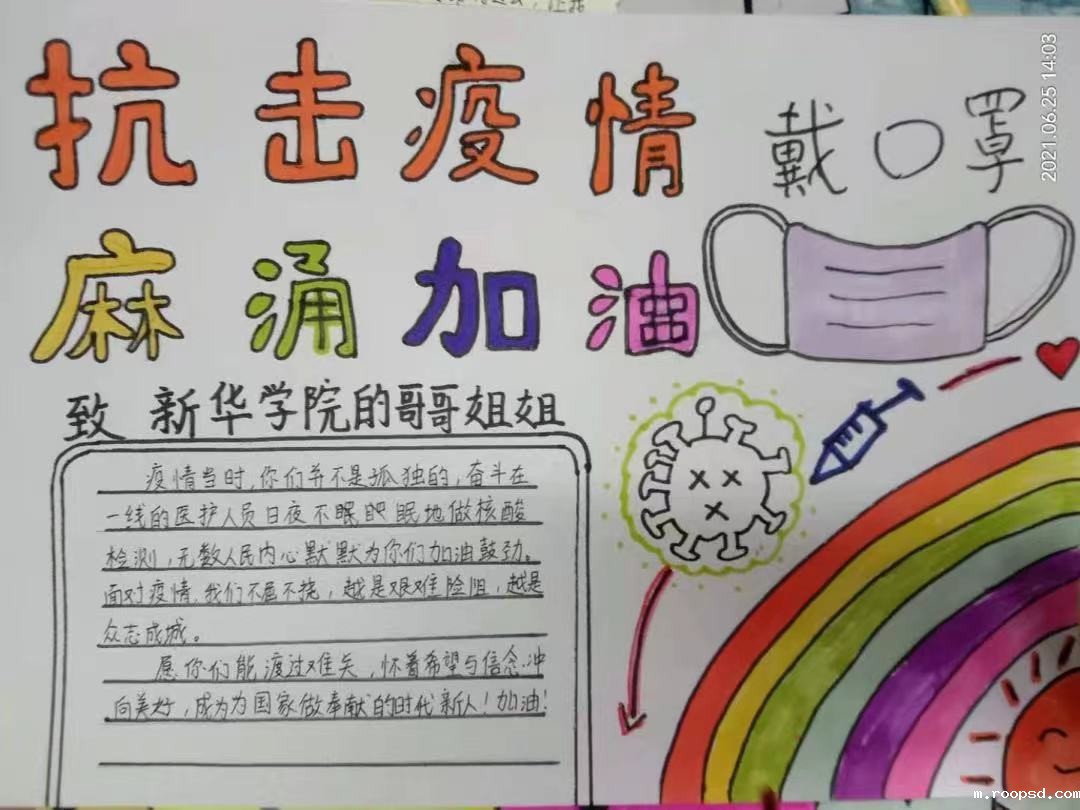 抗击疫情
戴口罩
2021.06.25 14:03
麻涌加油
致 新华学院的哥哥姐姐
疫情当时，你们并不是孤独的，奋斗在
一线的医护人员日夜不眠地做核酸
检测，无数人民内心默默为你们加油鼓劲。
面对疫情，我们不屈不挠，越是艰难险阻，越是
众志成城。
愿你们能渡过难关，怀着希望与信念冲
向美好，成为为国家做奉献的时代新人！加油！
m.roopsd.com